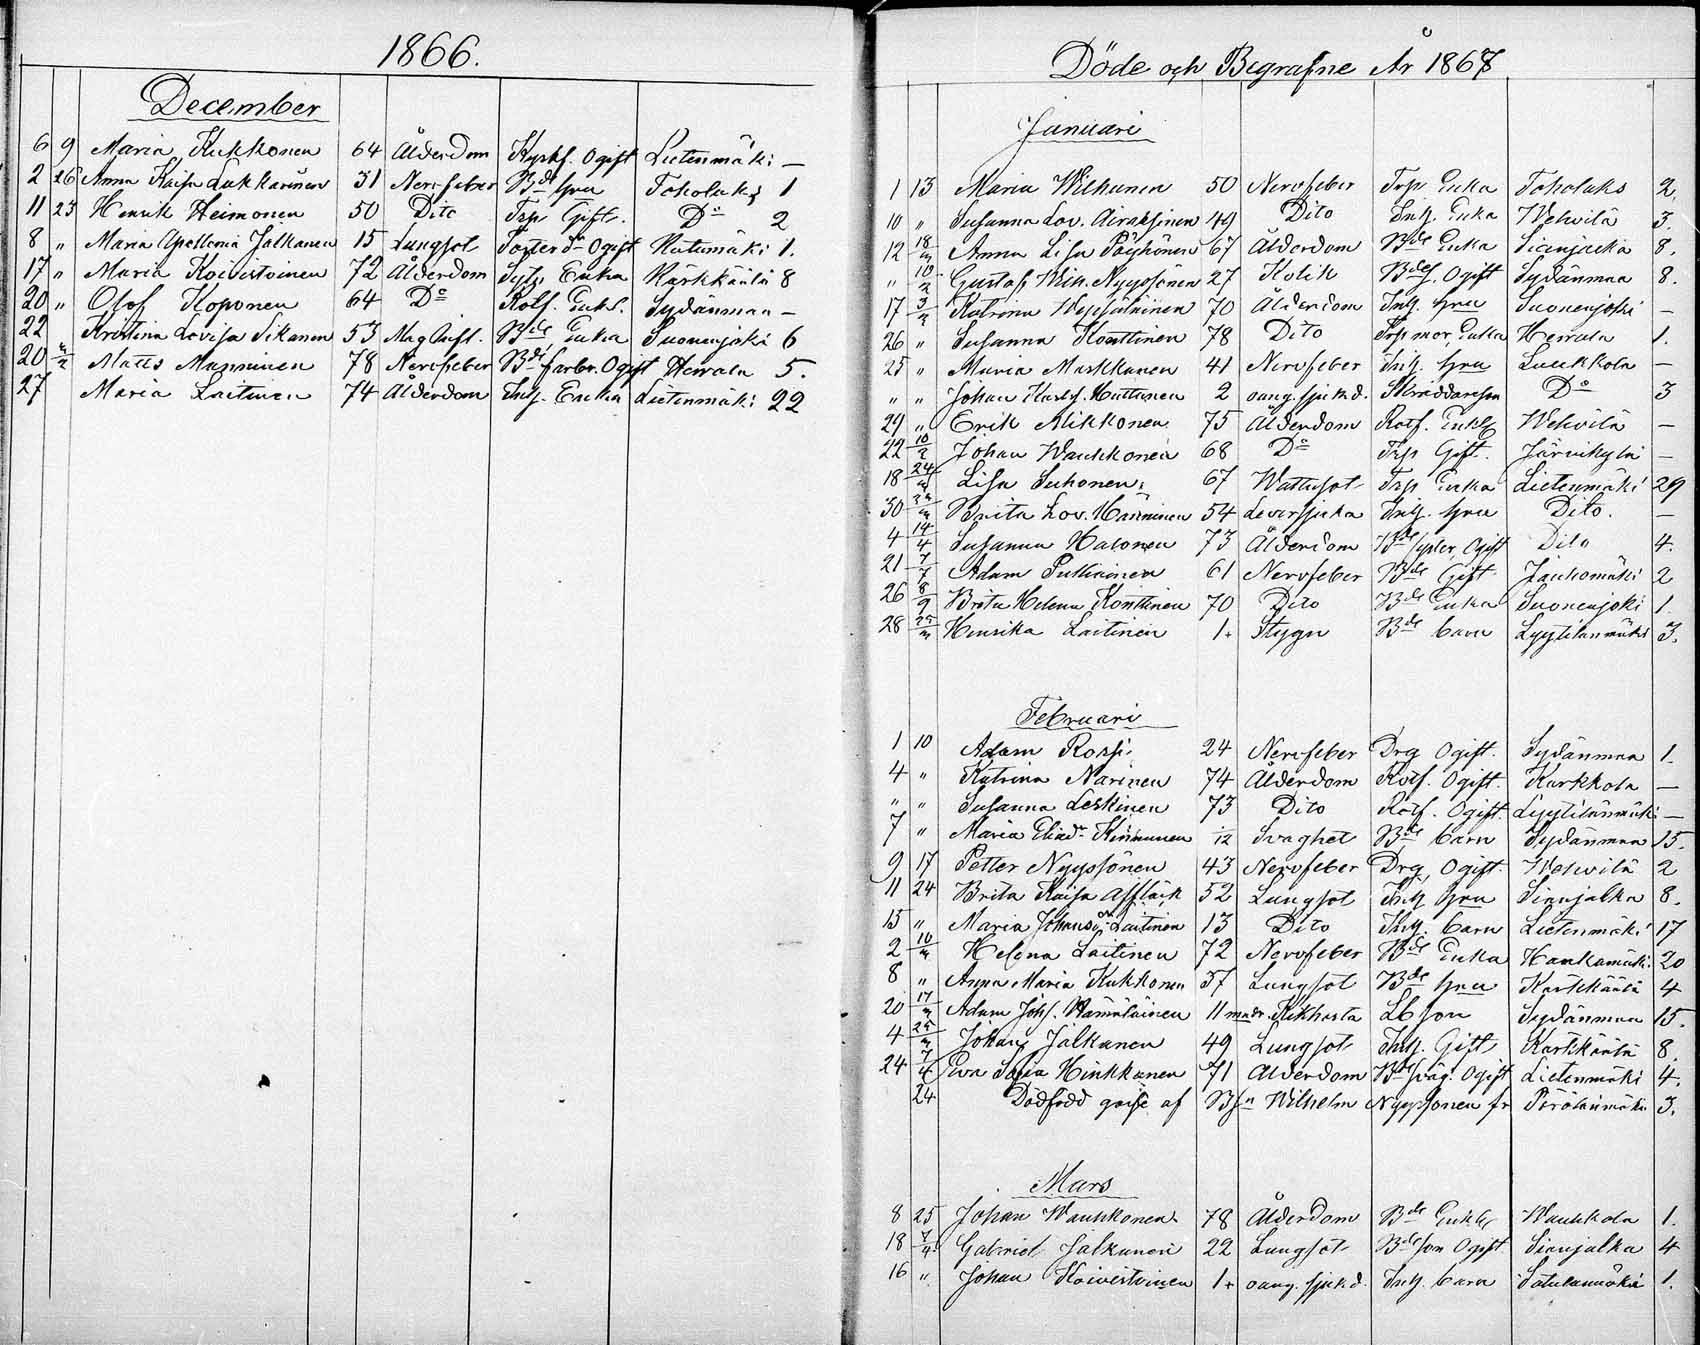 1866.
December
6 9 Maria Kukkonen 64 Ålderdom Kyrkf. Ogift Lietenmäki —
2 26 Anna Kaisa Lukkarinen 31 Nervfeber Bde hru Toholaks 1
11 23 Henrik Heimonen 50 Dito Trp Gift. Do 2
8 " Maria Apollonia Jalkanen 15 Lungsot Foster dr Ogift Kutumäki 1.
17 " Maria Koivistoinen 72 Ålderdom Sytn. Enka Kärkkäälä 8
20 " Olof Koponen 64 Do Rotf. Enkl. Sydänmaa —
22 Kristina Lovisa Sikanen 53 Mag Bde Enka Suonenjoki 6
20 Matts Manninen 78 Nervfeber Bde farbr. Ogift Herrala 5.
27 Maria Laitinen 74 Ålderdom Inh. Enka Lietenmäki 22
Döde och Begrafne År 1867
Januari
1 13 Maria Wilhunen 50 Nervfeber Trp Enka Toholaks 2.
10 " Susanna Lov. Airaksinen 49 Dito Inh. Enka Wehvilä 3.
12 18/ Anna Lisa Pöyhönen 67 Ålderdom Bde Enka Sianjalka 8.
" 10/2 Gustaf Wilh. Nyyssönen 27 Kolik Bdes. Ogift Sydänmaa 8.
17 3/ Katrina Weijalainen 70 Ålderdom Inh. hru Suonenjoki —
26 " Susanna Konttinen 78 Dito Trp mor, Enka Herrala 1.
25 " Maria Markkanen 41 Nervfeber Inh. hru Luukkola —
" " Johan Huttunen 2 oang. sjukd. Skräddareson Do 3
29 " Erik Mikkonen 75 Ålderdom Rotf. Enkl Wehvilä —
22 10/2 Johan Wauhkonen 68 Do Trp Gift. Järvikylä —
18 24/ Lisa Suhonen 67 Wattusot Trp Enka Lietenmäki 29
30 Brita Lov. Hänninen 54 Leversjuka Inh. hru Dito. —
4 14/4 Susanna Halonen 73 Ålderdom Bde syster, Ogift Dito 4.
21 7/7 Adam Putkinen 61 Nervfeber Bde Gift Jauhomäki 2
26 8/9 Brita Helena Konttinen 70 Dito Bde Enka Suonenjoki 1.
28 Henrika Laitinen 1. Stygn Bde barn Lyytilänmäki 3.
Februari
1 10 Adam Rossi 24 Nervfeber Drg Ogift. Sydänmaa 1.
4 " Katrina Narinen 74 Ålderdom Rotf. Ogift. Karkkola —
" " Susanna Leskinen 73 Dito Rotf. Ogift. Lyytilänmäki —
7 " Maria Eliadr Kinnunen 1/12 Svaghet Bde barn Sydänmaa 15.
9 17 Petter Nyyssönen 43 Nervfeber Drg, Ogift. Wehvilä 2
11 24 Brita Kaisa Affläck 52 Lungsot Inh hru Sianjalka 8.
15 " Maria Johansdr Laitinen 13 Dito Inh. barn Lietenmäki 17
2 10/ Helena Laitinen 72 Nervfeber Bde Enka Haukamäki 20
8 " Anna Maria Kukkonen 37 Lungsot Bde hru Kärkkäälä 4
20 17/ Adam Johs. Hämäläinen 11 mndr. Kikhosta Lb son Sydänmaa 15.
4 Johan Jalkanen 49 Lungsot Inh. Gift Kärkkäälä 8.
24 7/4 Eva Sofia Hinkkanen 71 Ålderdom Bde sväg. Ogift Lietenmäki 4.
24 Dödfödd gosse af Bsn Wilhelm Nyyssönen fr Pörölänmäki 3.
Mars
8 25 Johan Wauhkonen 78 Ålderdom Bde Enkl Wauhkola 1.
18 7/4 Gabriel Jalkanen 22 Lungsot Bde son Ogift Sianjalka 4
16 " Johan Koivistoinen 1. oang. sjukd. Inh. barn Satulamäki 1.